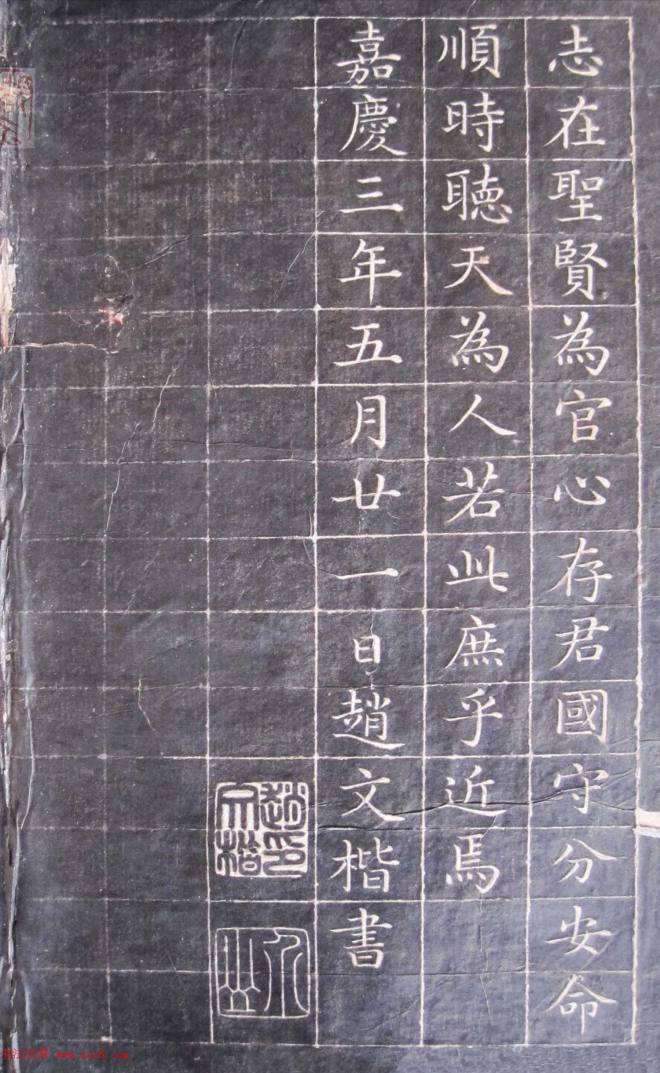 志在聖賢為官心存君國守分安命
順時聽天為人若此庶乎近焉
嘉慶三年五月廿一日趙文楷書
趙文楷印